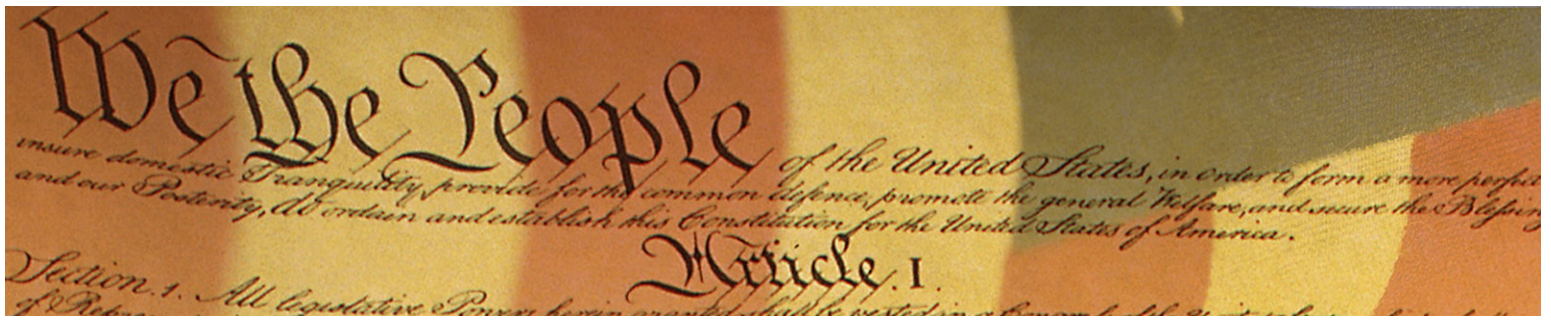 We the People of the United States, in order to form a more perfect
insure domestic Tranquility, provide for the common defence, promote the general Welfare, and secure the Blessing
and our Posterity, do ordain and establish this Constitution for the United States of America.
Article. I.
Section. 1. All legislative Powers herein granted shall be vested in a Congress of the
of